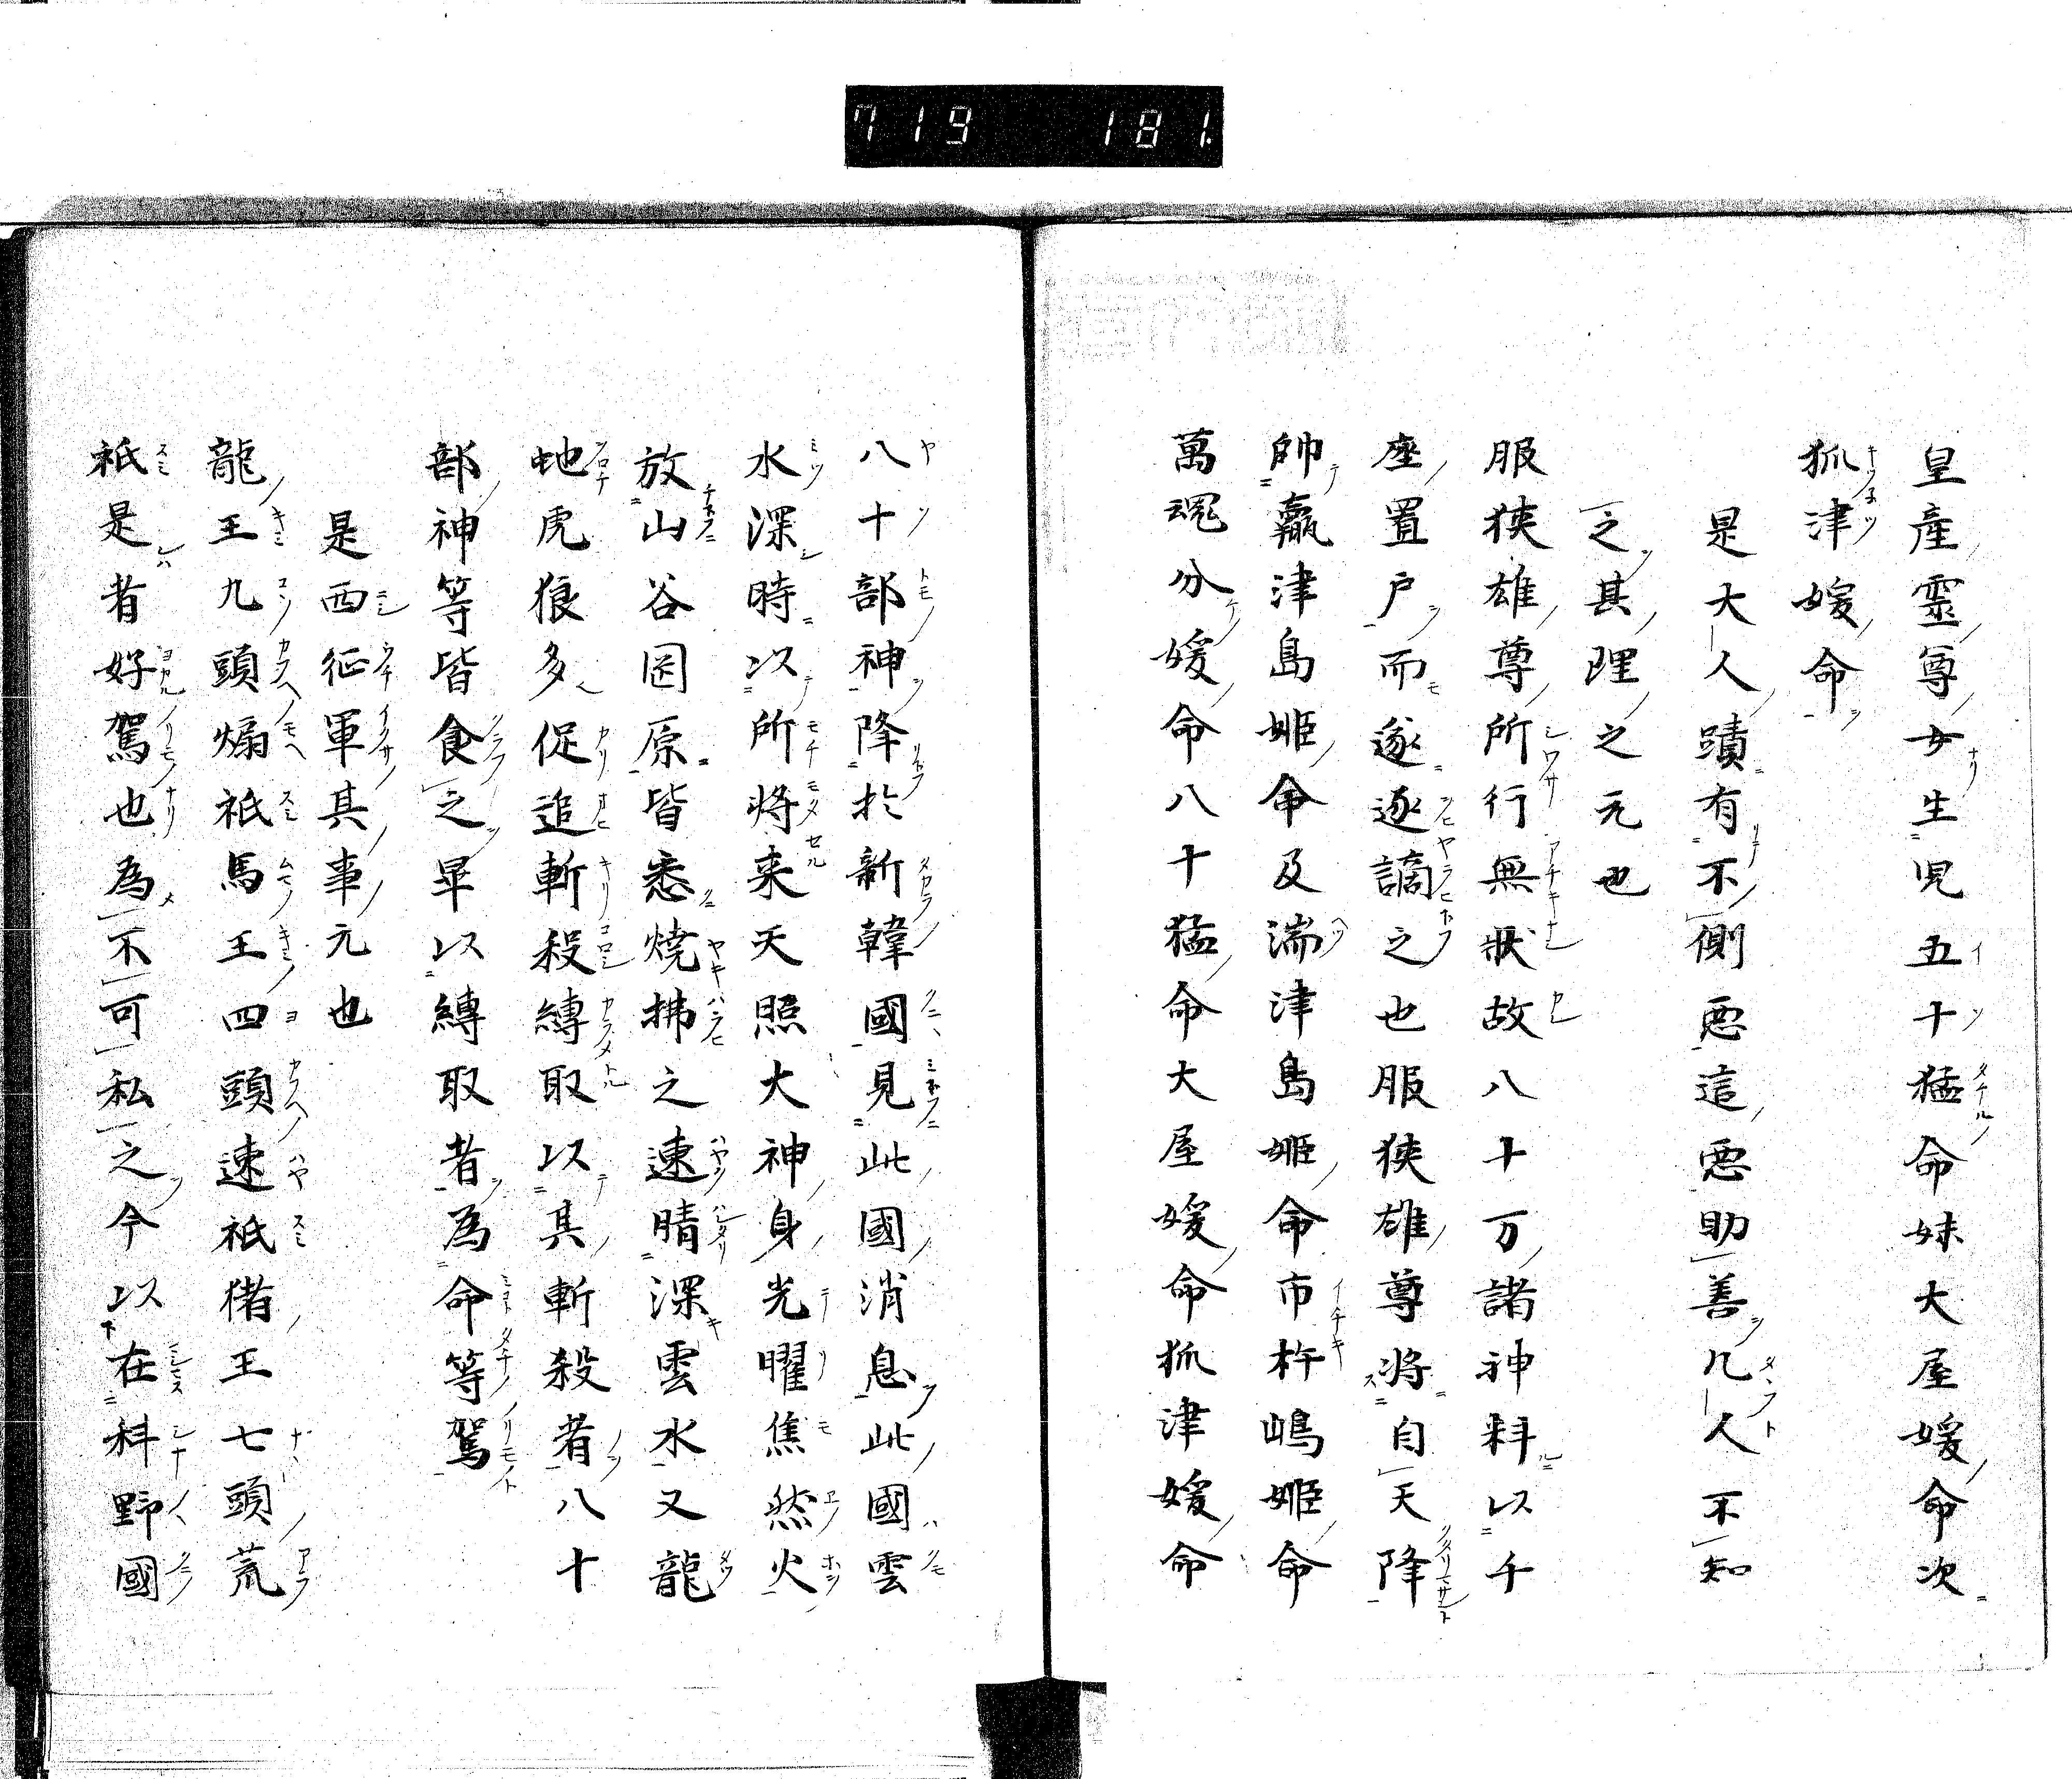 719 181.
皇産靈尊女生児五十猛命妹大屋媛命次
狐津媛命
是大人蹟有不側惡這惡助善凡人不知
之其理之元也
服狭雄尊所行無狀故八十万諸神科以千
座置戸而遂逐謫之也服狭雄尊将自天降
帥瀛津島姫命及湍津島姫命市杵嶋姫命
萬魂分媛命八十猛命大屋媛命狐津媛命
八十部神降於新韓國見此國消息此國雲
水深時以所将来天照大神身光曜焦然火
放山谷罡原皆悉燒拂之速晴深雲水又龍
虵虎狼多促追斬殺縛取以其斬殺者八十
部神等皆食之畢以縛取者為命等駕
是西征軍其事元也
龍王九頭煽祇馬王四頭速祇猪王七頭荒
祇是者好駕也為不可私之今以在科野國